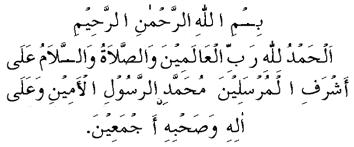 بِسْمِ اللهِ الرَّحْمٰنِ الرَّحِيْمِ
اَلْحَمْدُ لِلّٰهِ رَبِّ الْعَالَمِيْنَ وَالصَّلَاةُ وَالسَّلَامُ عَلَى
أَشْرَفِ الْمُرْسَلِيْنَ مُحَمَّدِ الرَّسُوْلِ الْأَمِيْنِ وَعَلَى
اٰلِهِ وَصَحْبِهِ أَجْمَعِيْنَ.